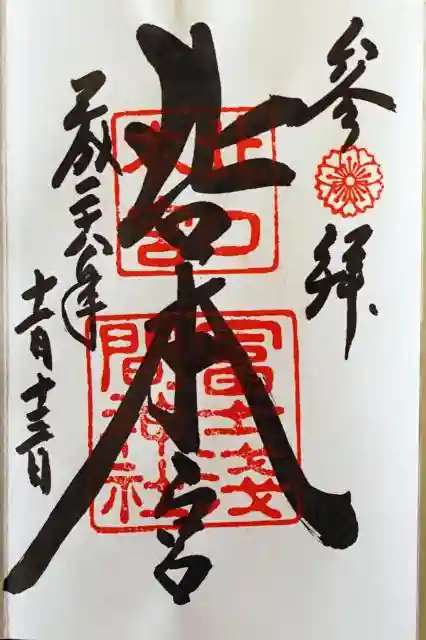 参拝
北口本宮
平成二十八年
十一月十三日
北口
本宮
冨士浅
間神社